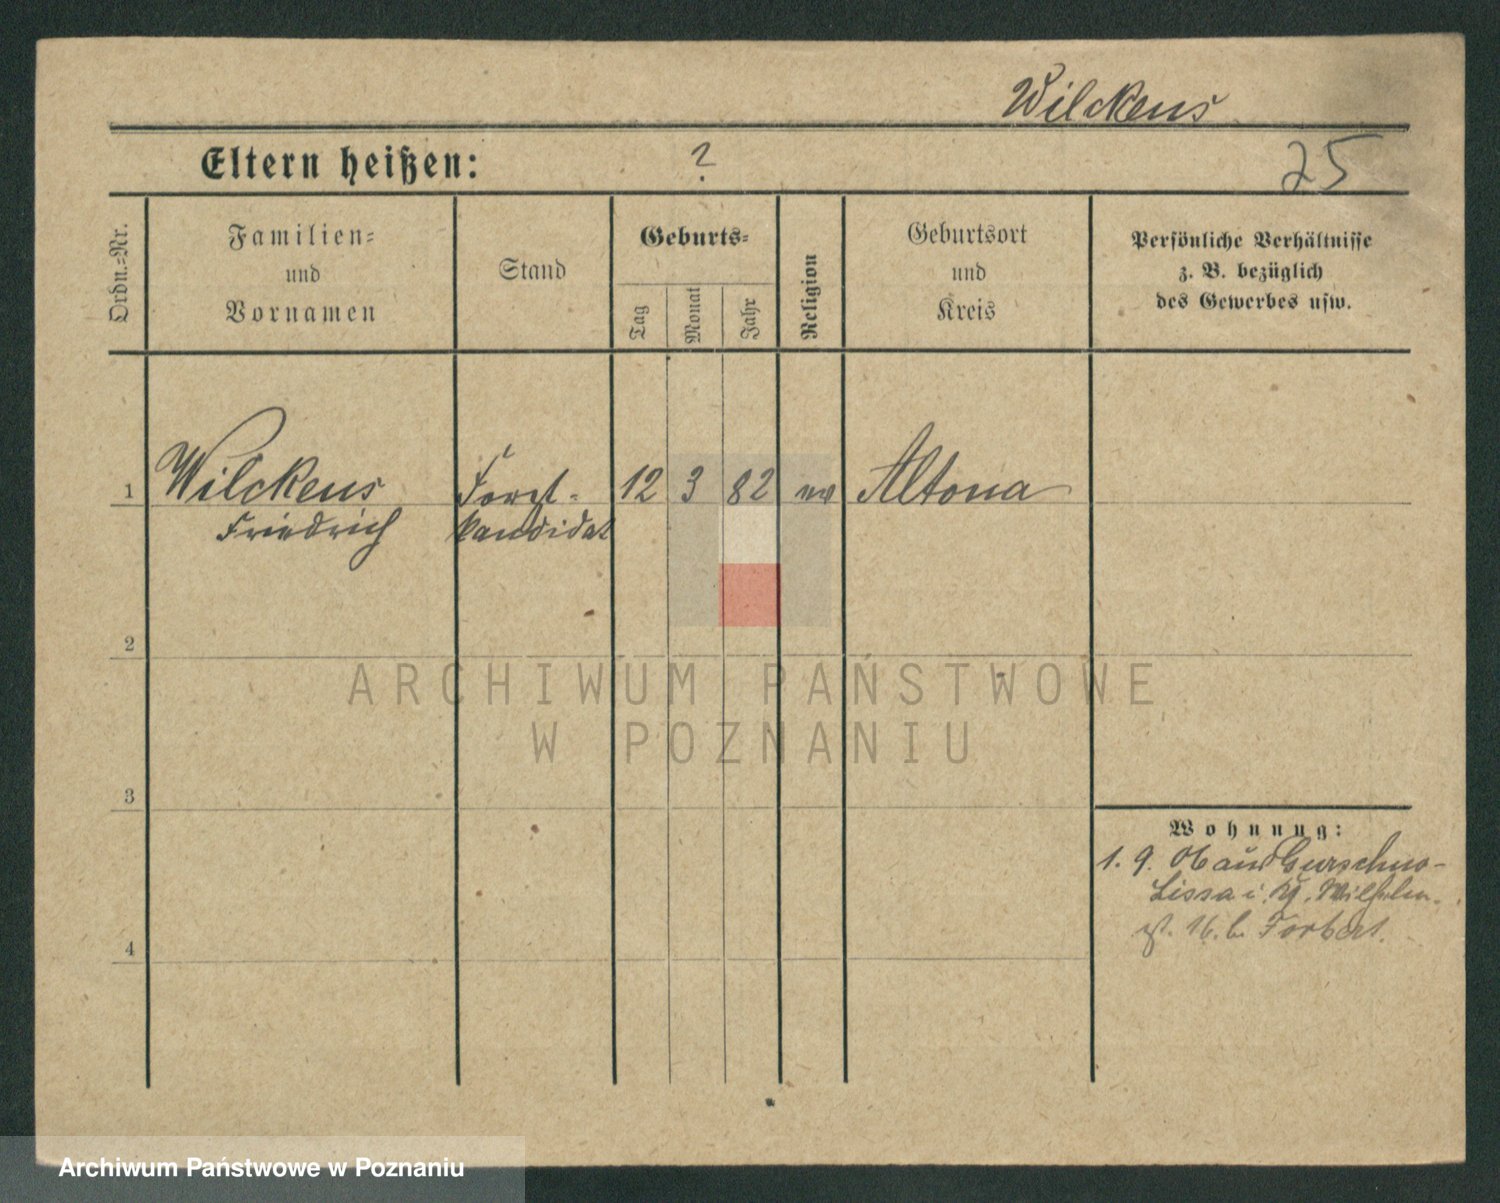 Wilckens
Eltern heißen: ?
25
Ordn.-Nr.
Familien-
und
Vornamen
Stand
Geburts-
Tag
Monat
Jahr
Religion
Geburtsort
und
Kreis
Persönliche Verhältnisse
z. B. bezüglich
des Gewerbes usw.
1 Wilckens Forst- 12 3 82 ev Altona
Friedrich kandidat
2
3
4
Wohnung:
1. 9.
Lissa i.
16. b.
ARCHIWUM PAŃSTWOWE
W POZNANIU
Archiwum Państwowe w Poznaniu